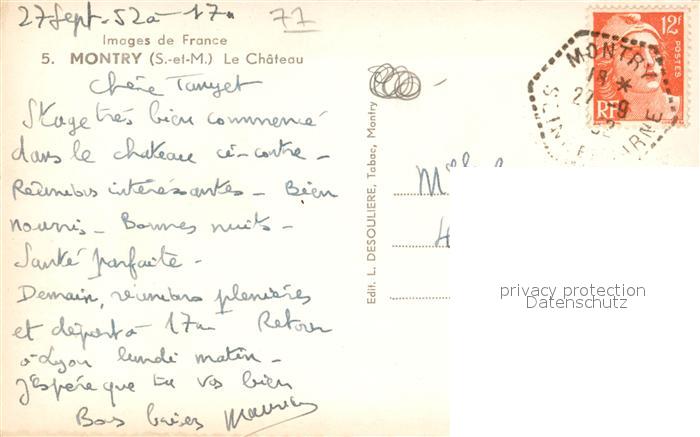 27 Sept. 52 à 17h
77
Images de France
5. MONTRY (S.-et-M.) Le Château
Chère
Stage très bien commencé
dans le chateau ci-contre -
Réunions intéressantes - Bien
nourris - Bonnes nuits -
Santé parfaite -
Demain, réunions plenières
et départ à 17h Retour
à Lyon lundi matin -
J'espère que tu vas bien
Bons baisers
Edit. L. DESOULIERE, Tabac, Montry
12f
POSTES
RF
MONTRY
18 *
27 -9
52
SEINE ET MARNE
Mlle
4
privacy protection
Datenschutz